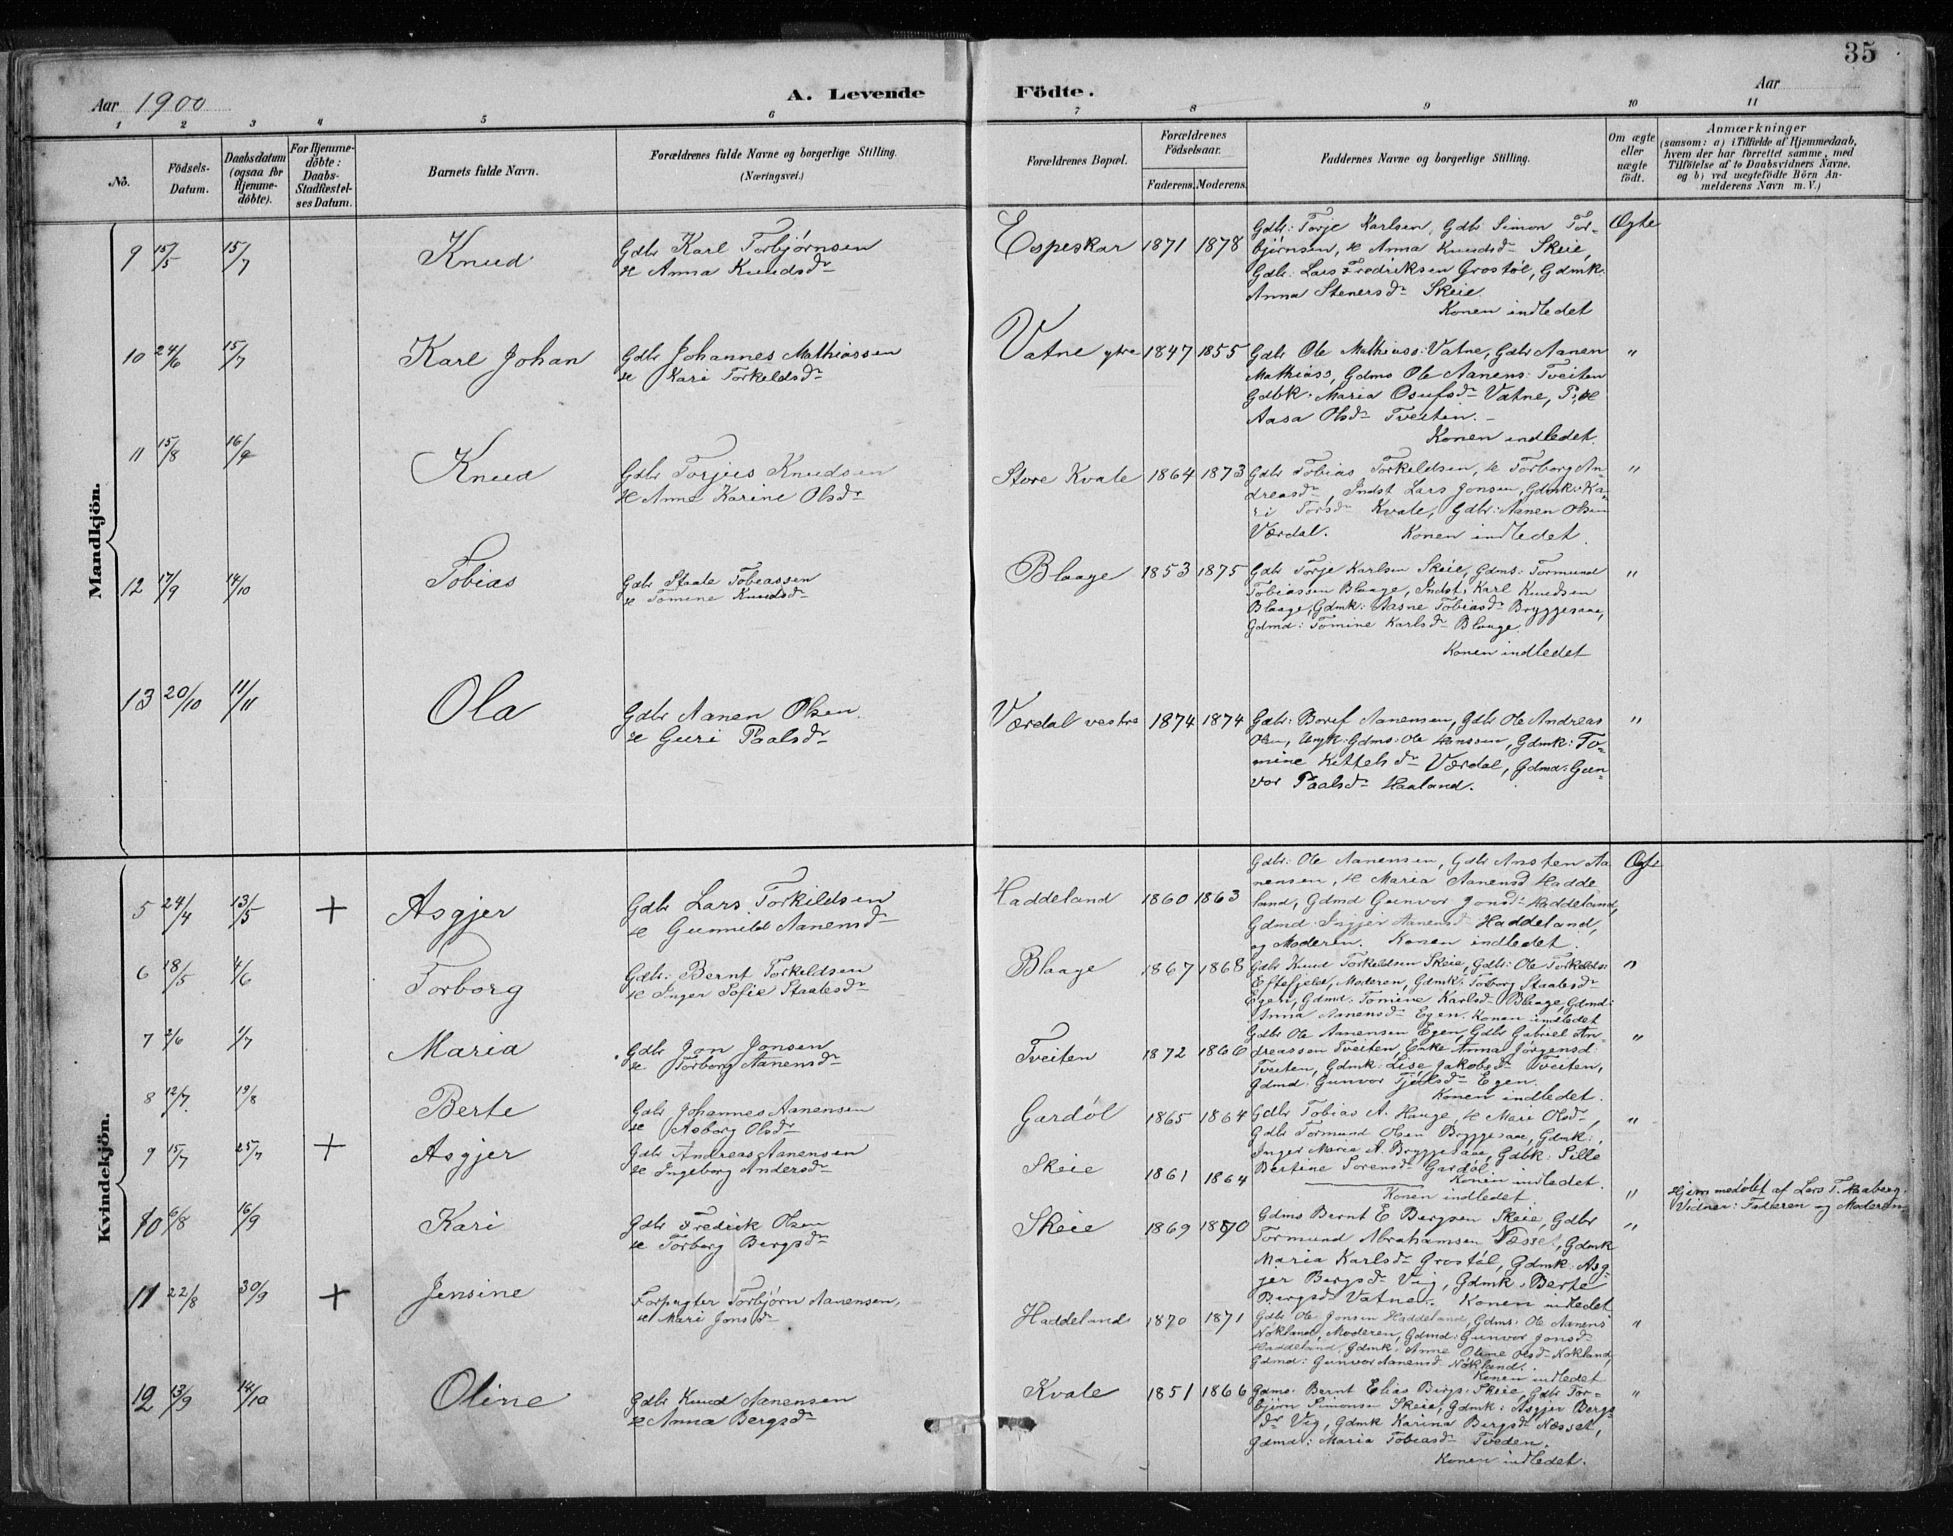 35
Aar 1900
A. Levende
Födte.
Aar
1 2 3 4 5 6 7 8 9 10 11
No.
Födsels-
Datum.
Daabsdatum
(ogsaa for
Hjemme-
döbte).
For Hjemme-
döbte:
Daabs-
Stadfæstel-
ses Datum.
Barnets fulde Navn.
Forældrenes fulde Navne og borgerlige Stilling.
(Næringsvei.)
Forældrenes Bopæl.
Forældrenes
Födselsaar.
Faderens. Moderens.
Faddernes Navne og borgerlige Stilling.
Om ægte
eller
uægte
födt.
Anmærkninger
(saasom: a) i Tilfælde af Hjemmedaab,
hvem der har forrettet samme, med
Tilföielse af to Daabsvidners Navne,
og b) ved uægtefödte Börn An-
melderens Navn m. V.)
Mandkjön.
9 15/5 15/7 Knud
Gdbr Karl Torbjørnsen
H Anna Knudsdr
Espeskar 1871 1878
Gdbr: Torje Karlsen, Gdbr Simon Tor-
bjørnsen, H Anna Knudsdr Skeie,
Gdbr: Lars Fredriksen Grostøl, Gdmk:
Anna Stenersdr Skeie.
Konen indledet
Ægte
10 24/6 15/7 Karl Johan
Gdbr Johannes Mathiassen
H Kari Torkeldsdr
Vatne ytre 1847 1855
Gdbr Ole Mathiass: Vatne, Gdbr Aanen
Mathiass, Gdms Ole Aanens: Tveiten
Gdbk: Maria Osufsdr Vatne, P:
Aasa Olsdr Tveiten.
Konen indledet.
"
11 15/8 16/9 Knud
Gdbr Torjus Knudsen
H Anne Karine Olsdr
Store Kvale 1864 1873
Gdbr Tobias Torkildsen, H Torborg An-
dreasdr, Indst Lars Jonsen, Gdmk: Ka-
ri Torsdr Kvale, Gdbr: Aanen Olsen
Værdal. Konen indledet.
"
12 17/9 14/10 Tobias
Gdbr Staale Tobiassen
H Tomine Knudsdr
Blaage 1853 1875
Gdbr Torje Karlsen Skeie, Gdms: Tormund
Tobiassen Blaage, Indst: Karl Knudsen
Blaage, Gdmk: Aasne Tobiasdr Bryggesaae,
Gdmd: Tomine Karlsdr Blaage.
Konen indledet
"
13 20/10 11/11 Ola
Gdbr Aanen Olsen.
H Guri Paalsdr
Værdal vestre 1874 1874
Gdbr: Boruf Aanensen, Gdbr Ole Andreas
Olsen, Ungk: Gdms: Ole Hanssen, Gdmk: To-
mine Kittelsdr Værdal, Gdmd: Gun-
vor Paalsdr Haaland.
"
Kvindekjön.
5 24/4 13/5 + Asgjer
Gdbr Lars Torkildsen
H Gunnild Aanensdr
Haddeland 1860 1863
Gdbr: Ole Aanensen, Gdbr Ansten Aa-
nensen, H Maria Aanensd Hadde-
land, Gdmd Gunvor Jonsdr Haddeland,
Gdmd: Ingjer Aanensdr Haddeland,
og Moderen. Konen indledet.
Ægte
6 18/5 4/6 Torborg
Gdbr: Bernt Torkeldsen
H Inger Sofie Staalesdr
Blaage 1867 1868
Gdbr Knud Torkeldsen Skeie, Gdbr: Ole Torkelds:
Eftefjeld, Moderen, Gdmk: Torborg Staalesdr
Egen, Gdmd: Tomine Karlsdr Blaage, Gdmd:
Anna Aanensdr Egen. Konen indledet
"
7 2/6 1/7 Maria
Gdbr Jon Jonsen
H Torborg Aanensdr
Tveiten 1872 1866
Gdbr Ole Aanensen Egen, Gdbr Gabriel An-
dreassen Tveiten, Enke Anna Jørgensd:
Tveiten, Gdmk: Lise Jakobsdr Tveiten,
Gdmd: Gunvor Tjølsdr Egen.
Konen indledet.
"
8 12/7 19/8 Berte
Gdbr Johannes Aanensen
H Asborg Olsdr
Gardøl 1865 1864
Gdbr Tobias A. Hauge, H Mari Olsdr,
Gdbr Tormund Olsen Bryggesaae, Gdmk:
Inger Marie A. Bryggesaae, Gdbk: Sille
Bertine Sorensdr Gardøl.
Konen indledet.
"
9 15/7 25/7 + Asgjer
Gdbr Andreas Aanensen
H Ingeborg Andersdr
Skeie 1861 1864
Konen indledet.
"
Hjemmedøbt af Lars T. Haaberg.
Vidner: Faderen og Moderen
10 6/8 16/9 Kari
Gdbr Fredrik Olsen
H Torborg Bergsdr
Skeie 1869 1870
Gdms Bernt E Bergsen Skeie, Gdbr
Tormund Abrahamsen Næsset, Gdmk
Maria Karlsdr Grostøl, Gdmk: Asg-
jer Bergsdr Vig, Gdmk: Berte
Bergsdr Vatne. Konen indledet
"
11 22/8 30/9 + Jensine
Forpagter Torbjørn Aanensen,
H Mari Jonsdr
Haddeland 1870 1871
Gdbr Ole Jonsen Haddeland, Gdms: Ole Aanens
Nökland, Moderen, Gdmd: Gunvor Jonsdr
Haddeland, Gdmk: Anne Oline Olsdr Nökland,
Gdmd: Gunvor Aanensd Nökland.
Konen indledet
"
12 13/9 14/10 Oline
Gdbr Knud Aanensen
H Anna Bergsdr
Kvale 1851 1866
Gdms: Bernt Elias Bergs: Skeie, Gdbr Tor-
bjørn Simonsen Skeie, Gdmk: Asgjer Bergs
dr Vig, Gdmk Karina Bergsdr Næsset,
Gdmd: Maria Tobiasdr Tveden.
Konen indledet.
"